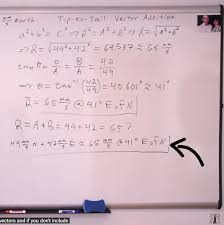 Tip-to-Tail Vector Addition
a² + b² = c² ⇒ R² = A² + B² ⇒ R = √(A² + B²)
⇒ R = √(49² + 42²) = 64.537 ≈ 65 mm/s
tan θ = O/A = B/A = 42/49
⇒ θ = tan⁻¹(42/49) = 40.601° ≈ 41°
R = 65 mm/s @ 41° E of N
R = A + B = 49 + 42 = 65 ?
49 mm/s N + 42 mm/s E ≈ 65 mm/s @ 41° E of N
vectors and if you don't include